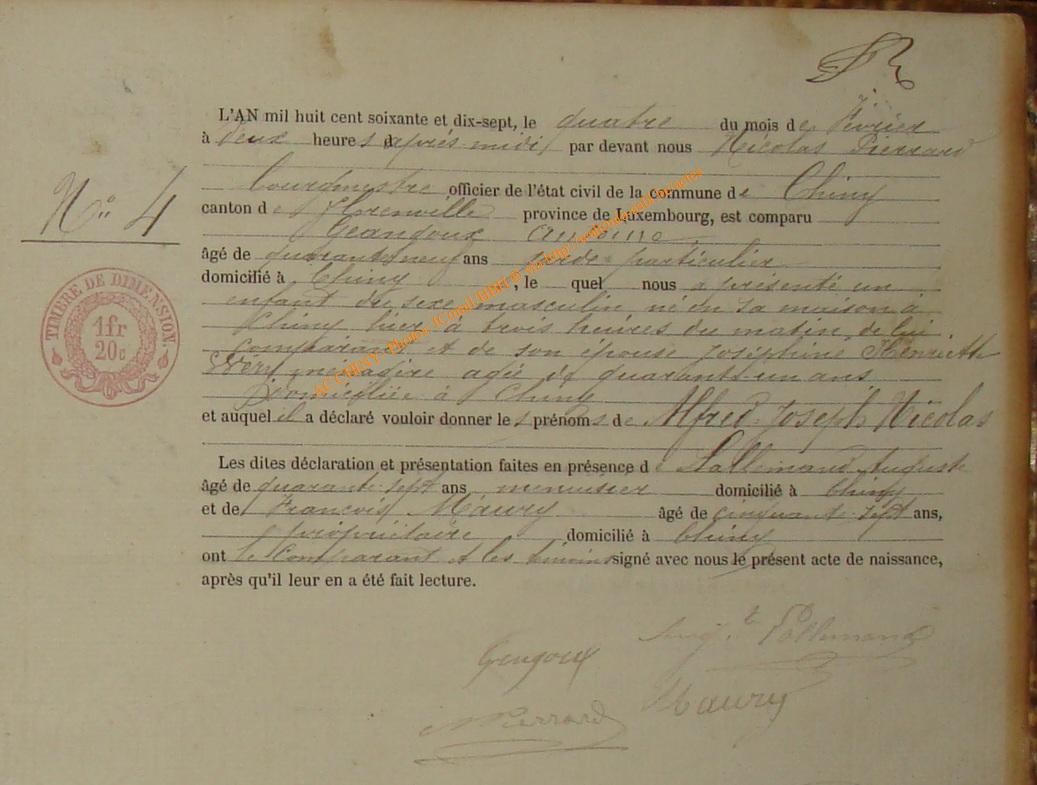 L'AN mil huit cent soixante et dix-sept, le quatre du mois de Février
à Deux heures d'après midi par devant nous Nicolas Pierrard
Bourgmestre officier de l'état civil de la commune de Chiny
N° 4
canton de Florenville province de Luxembourg, est comparu
âgé de quarante neuf ans garde particulier
domicilié à Chiny, le quel nous a présenté un
enfant du sexe masculin né en sa maison à
Chiny hier à trois heures du matin de lui
comparant et de son épouse Joséphine Henriette
ménagère agée de quarante un ans
Domiciliée à Chiny
et auquel il a déclaré vouloir donner les prénoms de Alfred Joseph Nicolas
Les dites déclaration et présentation faites en présence de Lallemand Auguste
âgé de quarante sept ans menuisier domicilié à Chiny
et de François Maury âgé de cinquante sept ans,
propriétaire domicilié à Chiny
ont le comparant et les témoins signé avec nous le présent acte de naissance,
après qu'il leur en a été fait lecture.
TIMBRE DE DIMENSION.
1fr
20c
Lallemand
Gengoux
Maury
NPierrard